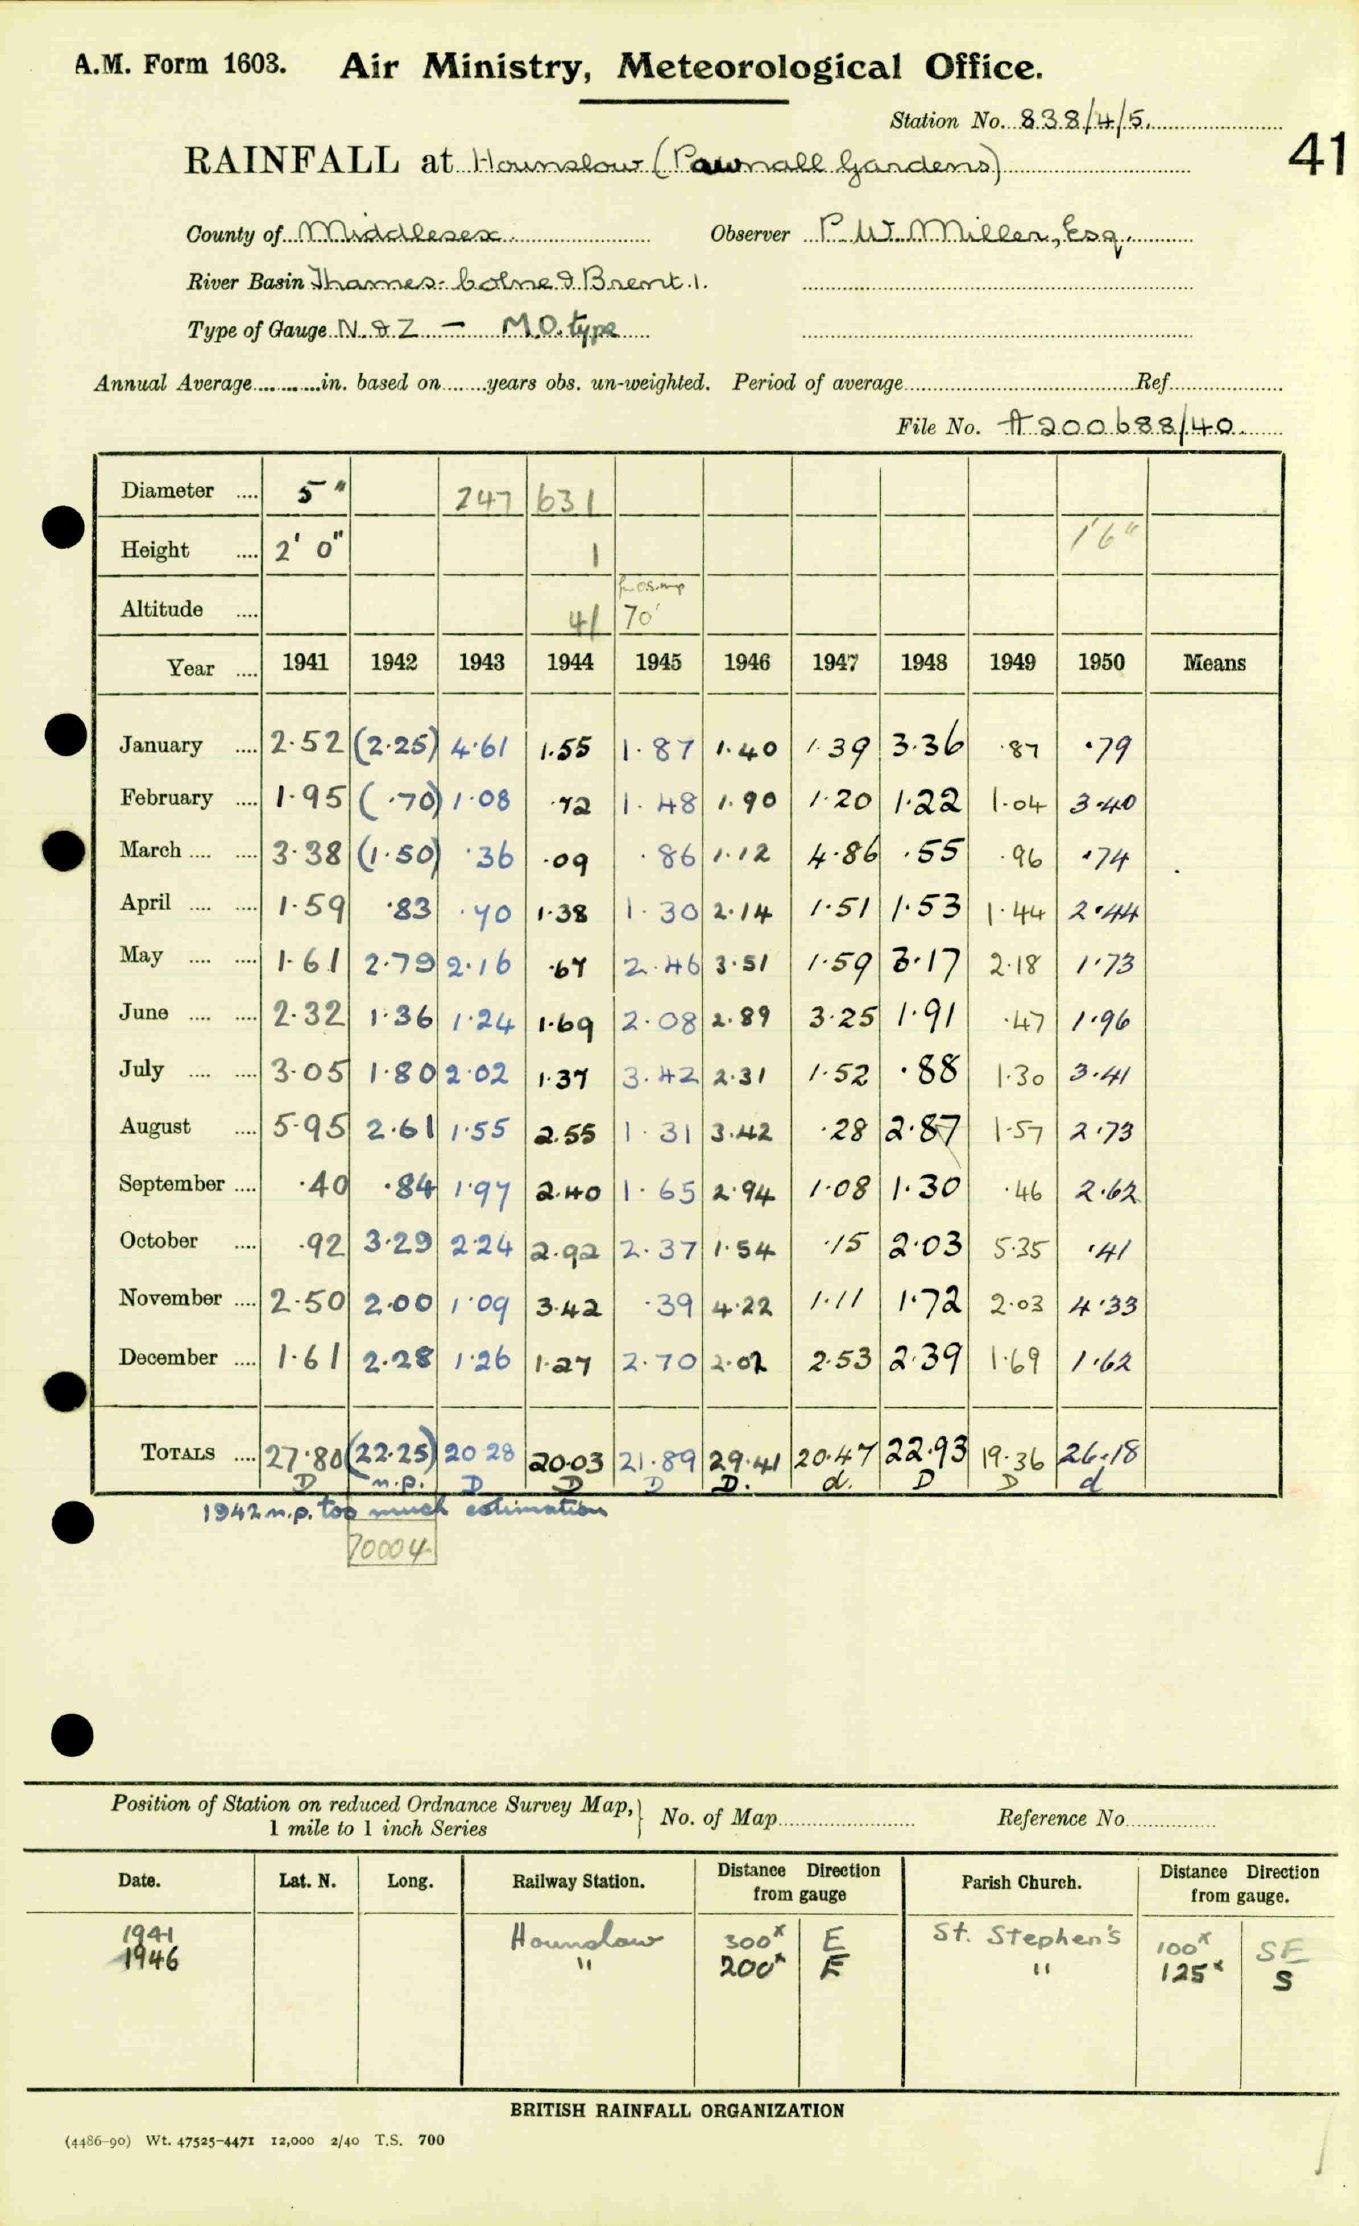 A.M. Form 1603. Air Ministry, Meteorological Office.
Station No. 838/4/5.
41
RAINFALL at Hounslow (Pawnall Gardens)
County of Middlesex. Observer P. W. Miller, Esq.
River Basin Thames-Colne & Brent.1.
Type of Gauge N. & Z – M.O. type
Annual Average in. based on years obs. un-weighted. Period of average Ref
File No. A200688/40
Diameter .... 5" 247 631
Height .... 2' 0" 1 1'6"
Altitude .... 41 70'
Year .... 1941 1942 1943 1944 1945 1946 1947 1948 1949 1950 Means
January .... 2.52 (2.25) 4.61 1.55 1.87 1.40 1.39 3.36 .87 .79
February .... 1.95 (.70) 1.08 .72 1.48 1.90 1.20 1.22 1.04 3.40
March .... .... 3.38 (1.50) .36 .09 .86 1.12 4.86 .55 .96 .74
April .... .... 1.59 .83 .70 1.38 1.30 2.14 1.51 1.53 1.44 2.44
May .... .... 1.61 2.79 2.16 .67 2.46 3.51 1.59 3.17 2.18 1.73
June .... .... 2.32 1.36 1.24 1.69 2.08 2.89 3.25 1.91 .47 1.96
July .... .... 3.05 1.80 2.02 1.37 3.42 2.31 1.52 .88 1.30 3.41
August .... 5.95 2.61 1.55 2.55 1.31 3.42 .28 2.87 1.57 2.73
September .... .40 .84 1.97 2.40 1.65 2.94 1.08 1.30 .46 2.62
October .... .92 3.29 2.24 2.92 2.37 1.54 .15 2.03 5.35 .41
November .... 2.50 2.00 1.09 3.42 .39 4.22 1.11 1.72 2.03 4.33
December .... 1.61 2.28 1.26 1.27 2.70 2.02 2.53 2.39 1.69 1.62
TOTALS .... 27.80 (22.25) 20.28 20.03 21.89 29.41 20.47 22.93 19.36 26.18
D n.p. D D D D. d. D D d
1942 n.p. too much estimation
70004
Position of Station on reduced Ordnance Survey Map, 1 mile to 1 inch Series } No. of Map Reference No
Date. Lat. N. Long. Railway Station. Distance Direction from gauge Parish Church. Distance Direction from gauge.
1941 Hounslow 300x E St. Stephen's 100x SE
1946 " 200x E " 125x S
BRITISH RAINFALL ORGANIZATION
(4486-90) Wt. 47525-4471 12,000 2/40 T.S. 700